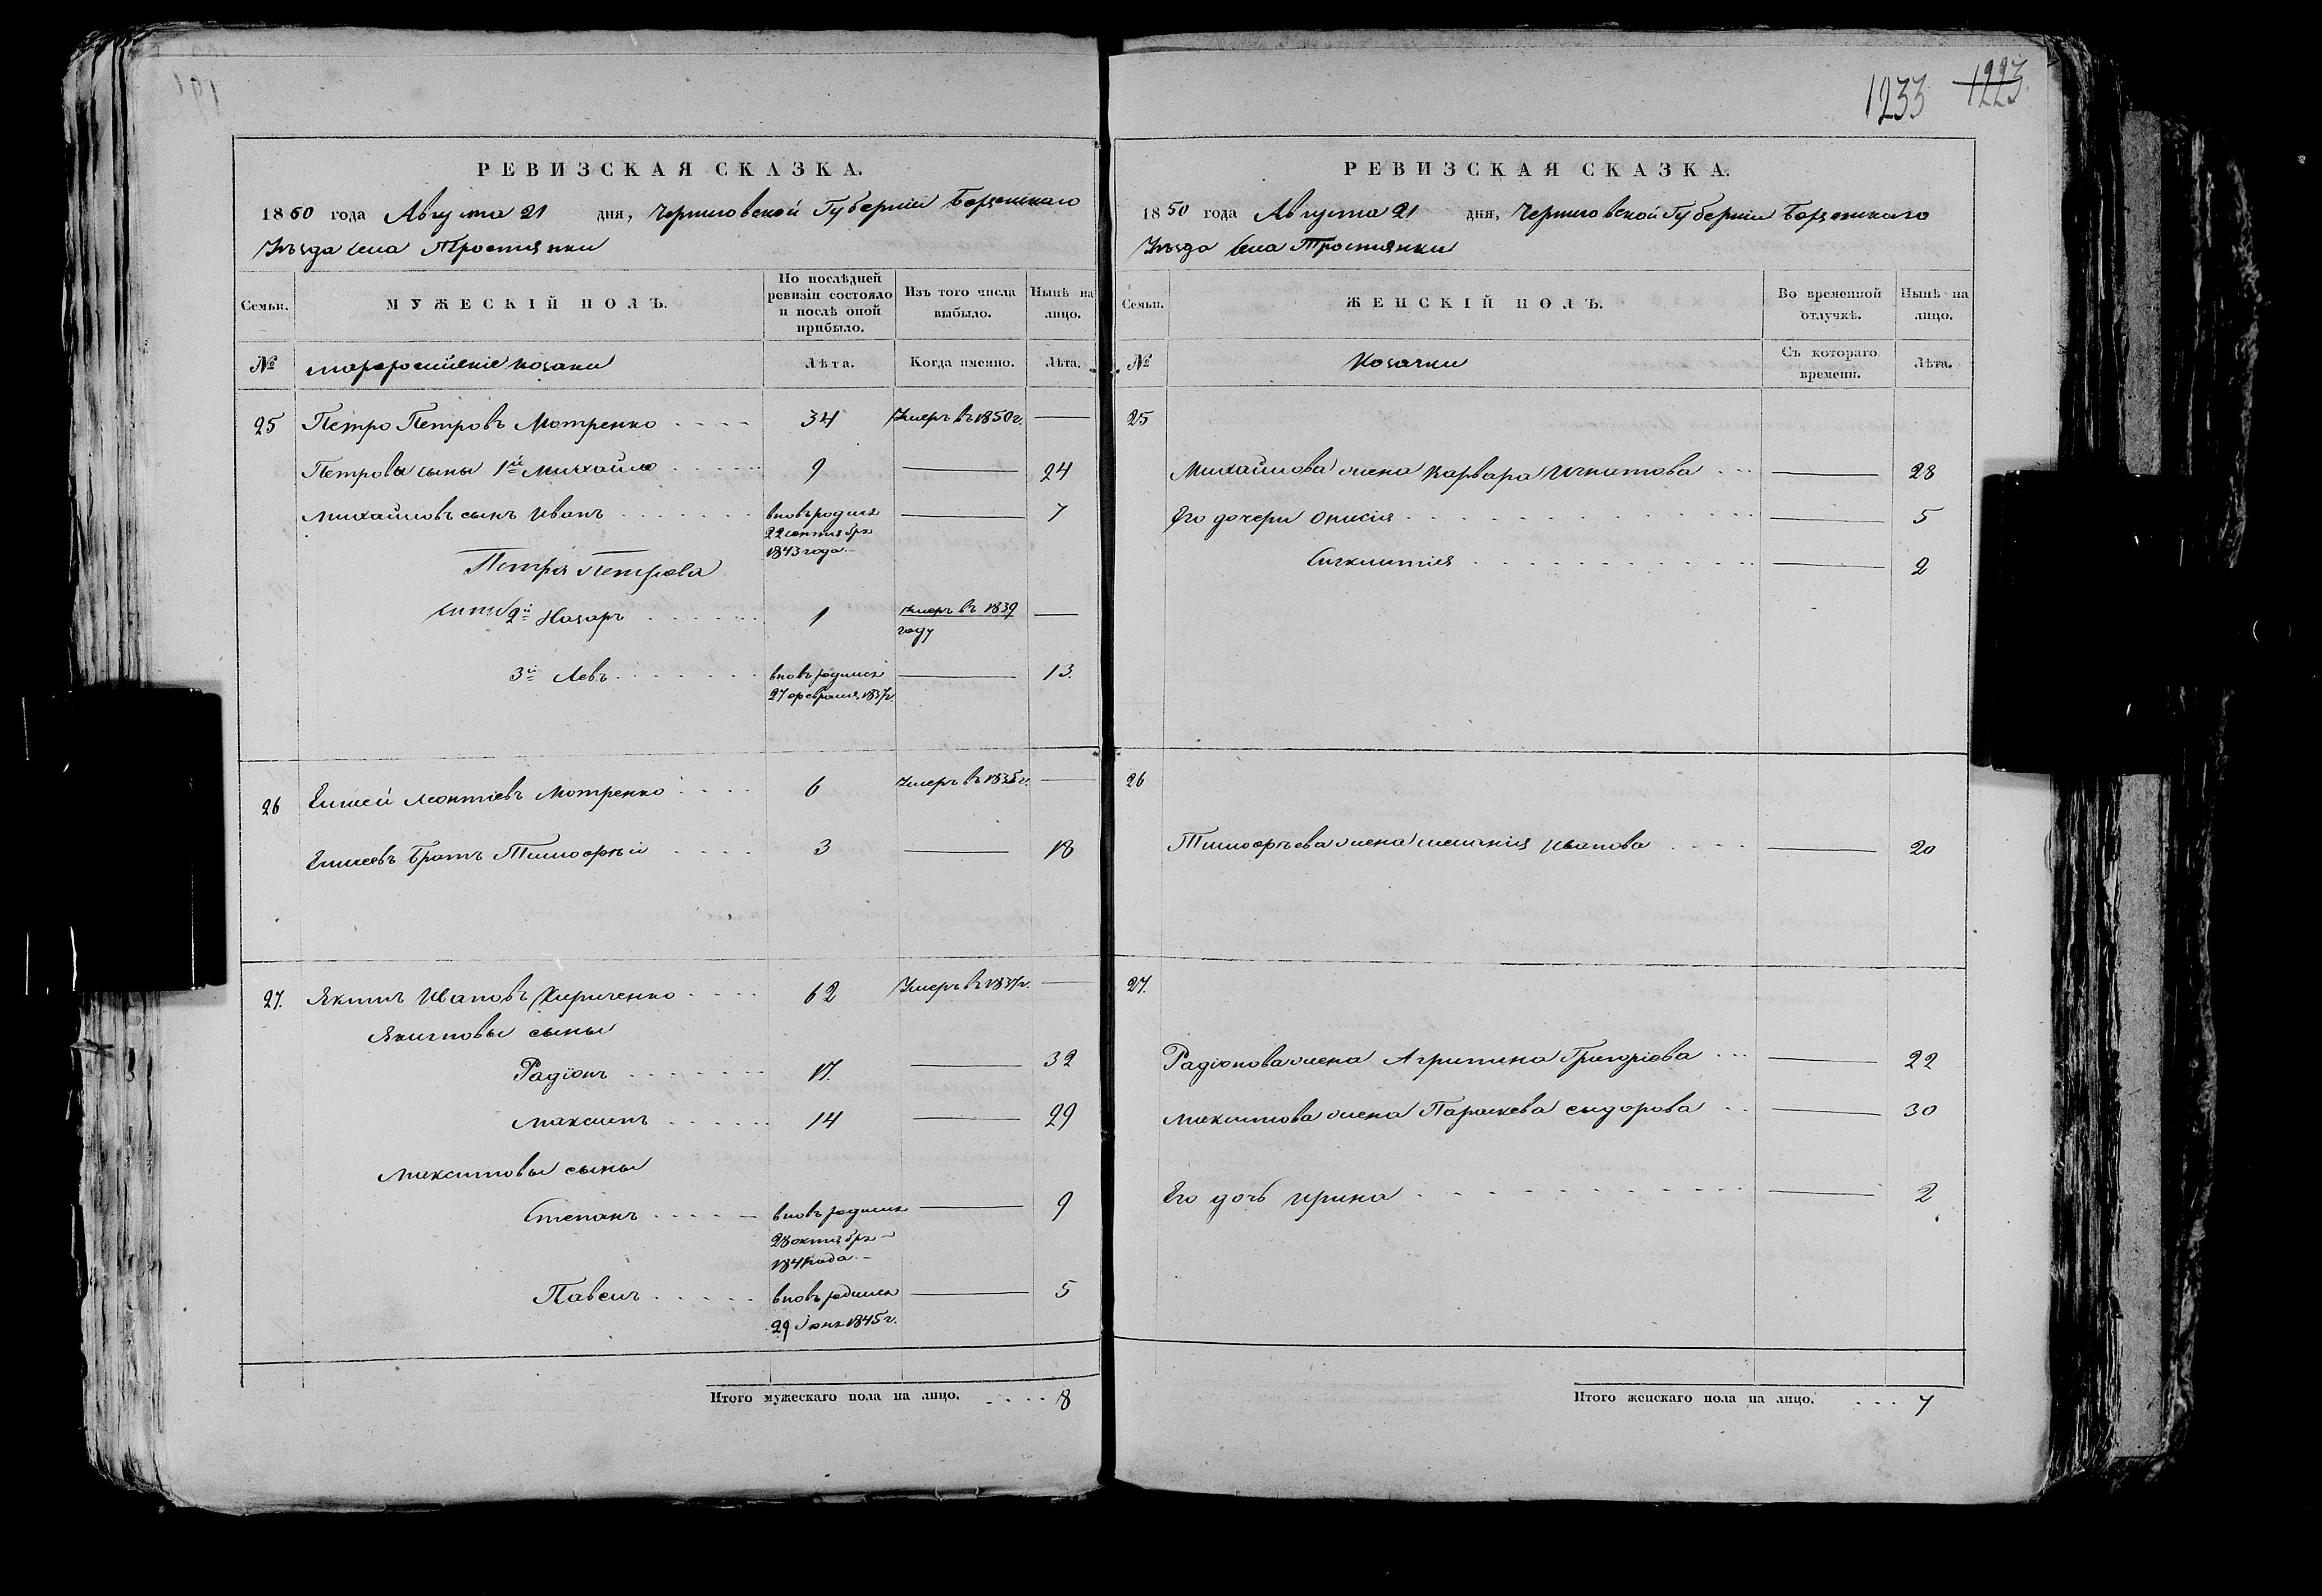 РЕВИЗСКАЯ СКАЗКА.
1850 года Августа 21 дня, Черниговской Губерніи Борзенского
Уѣзда села Тростянки
Семьи. МУЖЕСКІЙ ПОЛЪ. По послѣдней ревизіи состояло и послѣ оной прибыло. Изъ того числа выбыло. Нынѣ на лицо.
№ малороссійскіе козаки Лѣта. Когда именно. Лѣта.
25 Петро Петровъ Мотренко 34 Умеръ въ 1850 г. —
Петрова сыны 1й Михайло 9 — 24
Михайловъ сынъ Иванъ вновь родился — 7
22 сентября
1843 года
Петра Петрова
сыны 2й Назаръ 1 Умеръ въ 1839 —
году
3й Левъ вновь родился — 13.
27 февраля 1837 г.
26 Елисей Леонтіевъ Мотренко 6 Умеръ въ 1835 г. —
Елисеевъ братъ Тимофей 3 — 18
27. Якимъ Ивановъ Кириченко 62 Умеръ въ 1837 г. —
Якимовы сыны
Радіонъ 17. — 32
Максимъ 14 — 29
Максимовы сыны
Степанъ вновь родился — 9
28 октября
1841 года
Павелъ вновь родился — 5
29 Іюня 1845 г.
Итого мужескаго пола на лицо. 8
1233 1223
РЕВИЗСКАЯ СКАЗКА.
1850 года Августа 21 дня, Черниговской Губерніи Борзенского
Уѣзда села Тростянки
Семьи. ЖЕНСКІЙ ПОЛЪ. Во временной отлучкѣ. Нынѣ на лицо.
№ Козачки Съ котораго времени. Лѣта.
25
Михайлова жена Варвара Игнатова — 28
Его дочери Онисія — 5
— 2
26
Тимофѣева жена Иванова — 20
27.
Радіонова жена Агрипина Григоріова — 22
Максимова жена Параскева Сидорова — 30
Его дочь Ирина — 2
Итого женскаго пола на лицо. 7